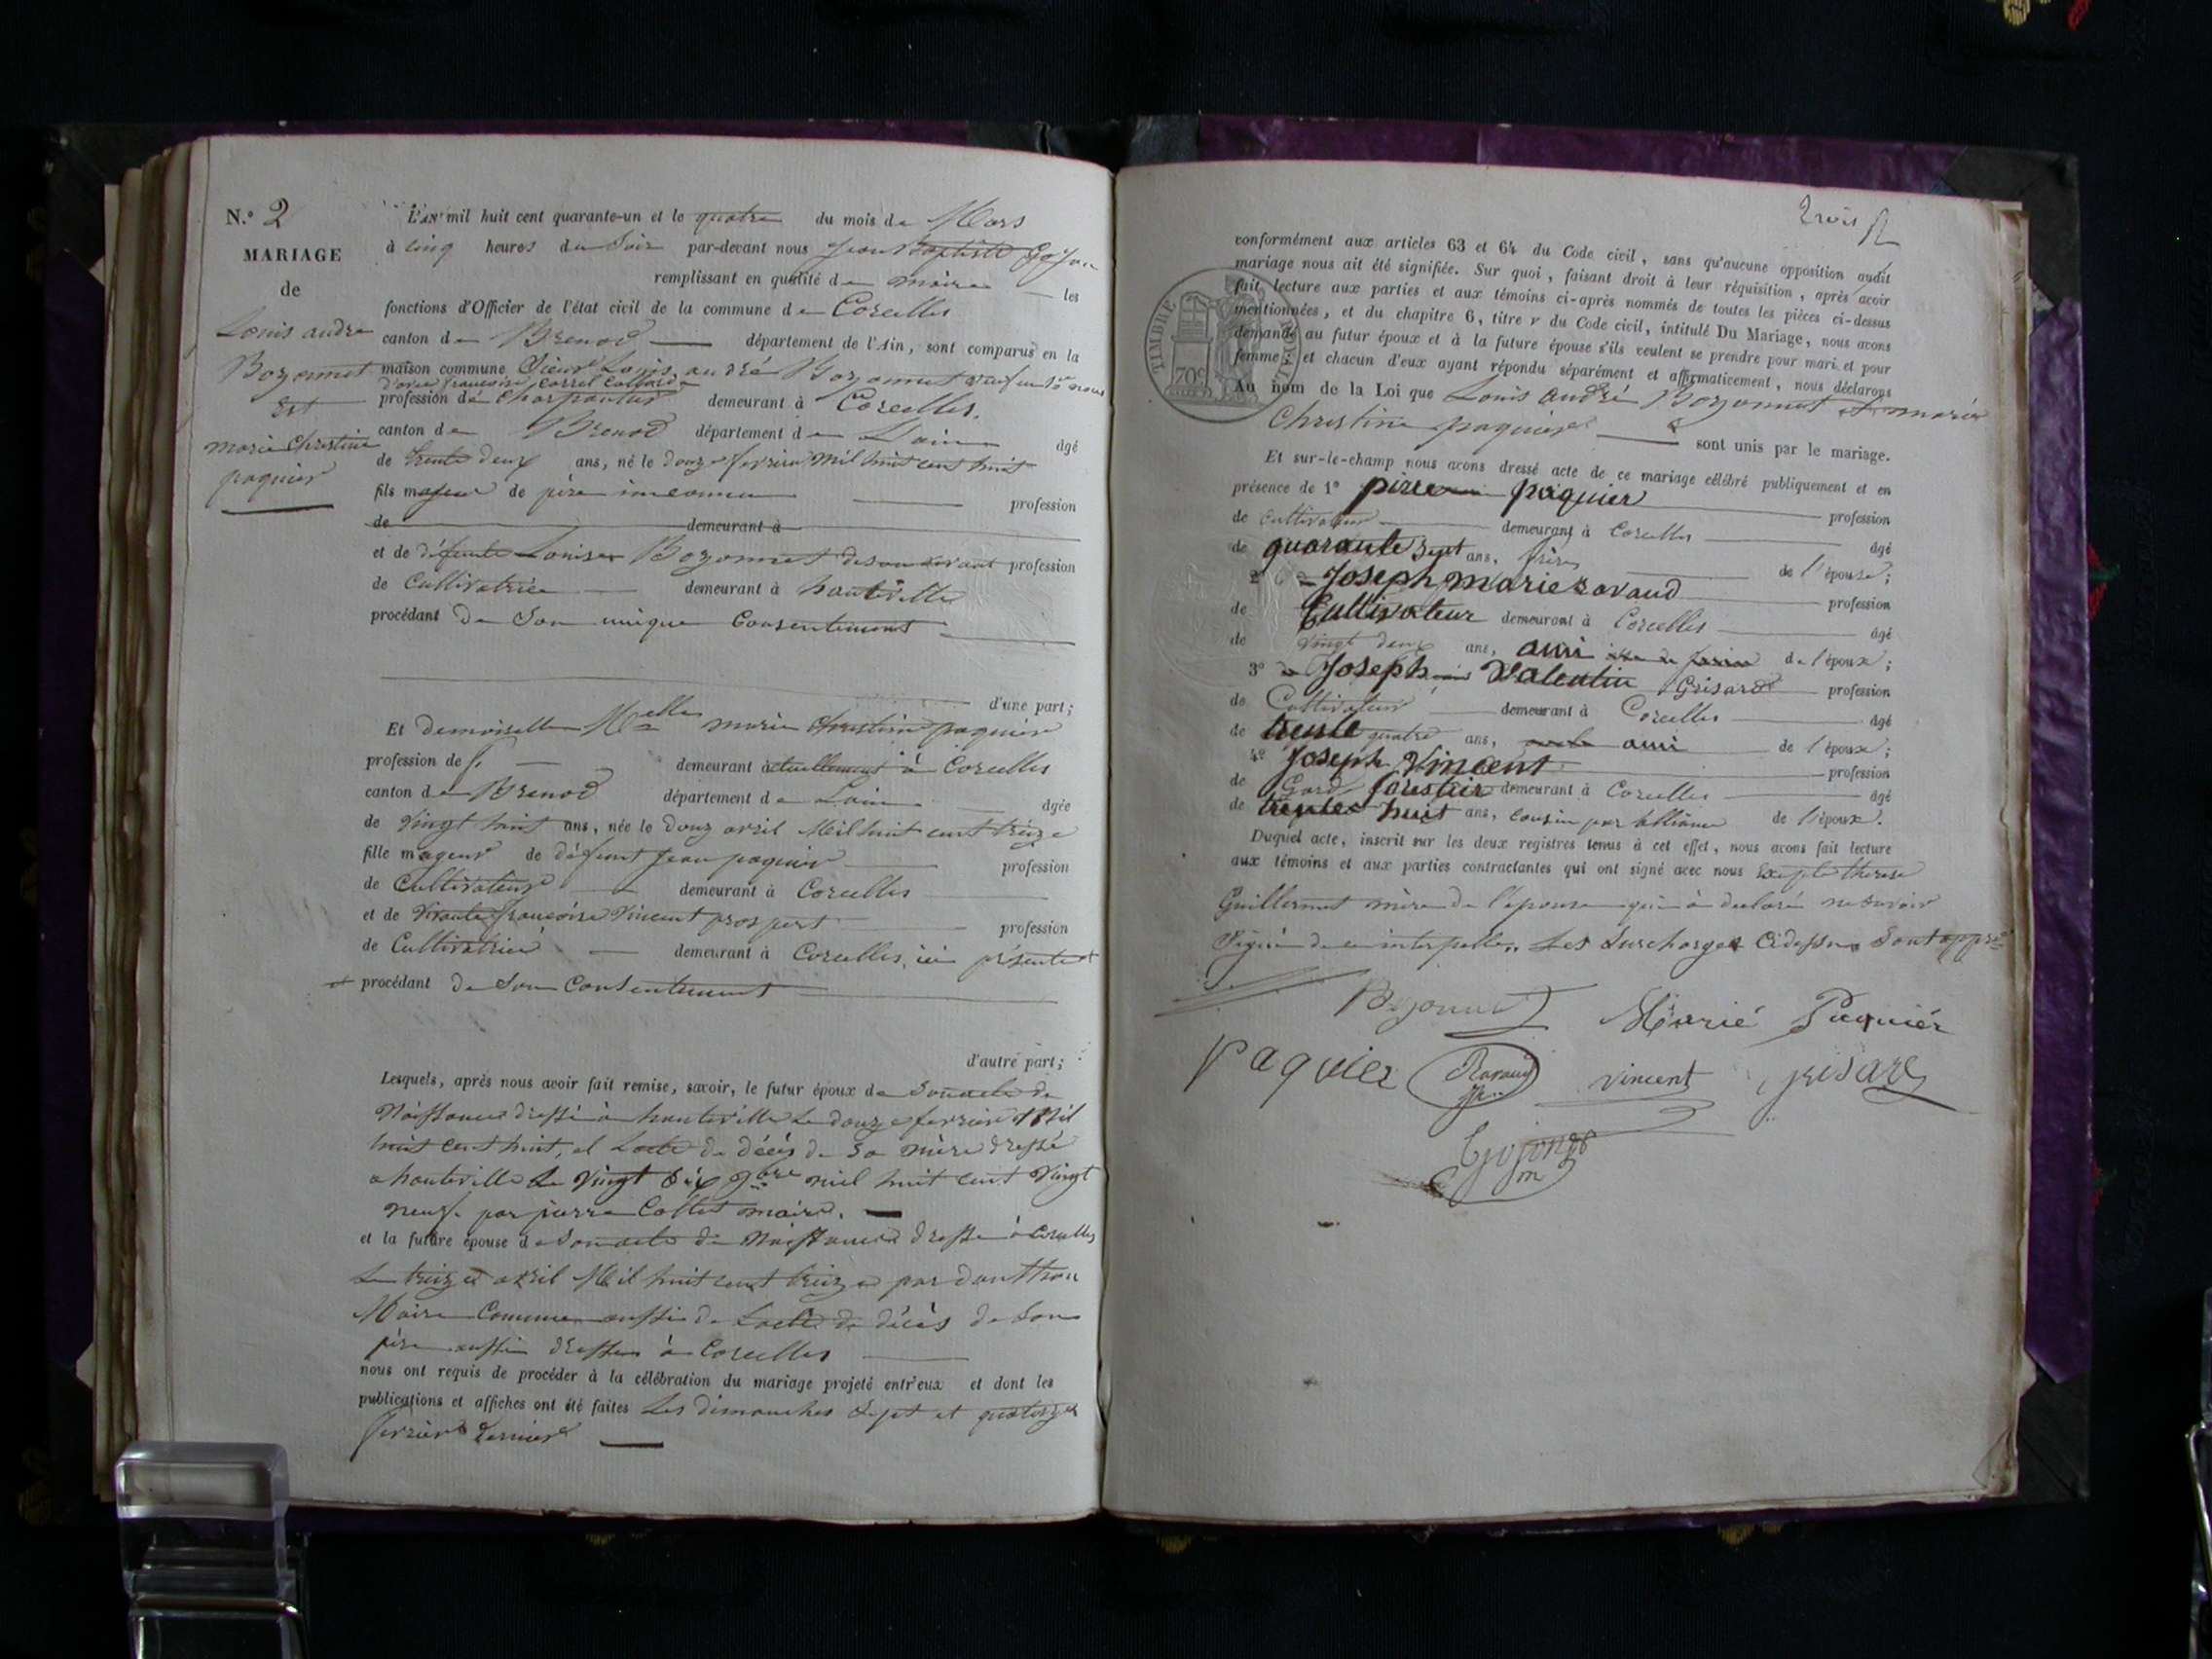 N.º 2
MARIAGE
de
Louis andre
Bozonnet
Et
marie Christine
paquier
L'an mil huit cent quarante-un et le quatre du mois de Mars
à cinq heures du Soir par-devant nous Jean Baptiste Gojon
remplissant en qualité de maire les
fonctions d'Officier de l'état civil de la commune de Corcelles
canton de Brenod département de l'Ain, sont comparus en la
maison commune Sieur Louis andré Bozonnet
profession de Charpentier demeurant à Corcelles
canton de Brenod département de Lain âgé
de trente deux ans, né le douze fevrier mil huit cent huit
fils majeur de père inconnu profession
de demeurant à
et de défunte Louise Bozonnet de son vivant profession
de Cultivatrice demeurant à hauteville
procédant de Son unique Consentement
d'une part;
Et Demoiselle Melle marie Christine paquier
profession de demeurant actuellement à Corcelles
canton de Brenod département de Lain âgée
de Vingt huit ans, née le douz avril Mil huit cent treize
fille majeur de défunt Jean paquier profession
de Cultivateur demeurant à Corcelles
et de Vivante françoise Vincent prospert profession
de Cultivatrice demeurant à Corcelles, ici présente et
procédant de Son Consentement
d'autre part;
Lesquels, après nous avoir fait remise, savoir, le futur époux de Son acte de
Naissance dressé à hauteville Le douze fevrier Mil
huit cent huit, et Lacte de décès de Sa mère dressé
a hauteville Le Vingt Six mil huit cent Vingt
neuf par pierre Collet maire.
et la future épouse de Son acte de Naissance dressé à Corcelles
Le treize avril Mil huit cent treize par
Maire Comme aussi de Lacte de décès de Son
père aussi dressé à Corcelles
nous ont requis de procéder à la célébration du mariage projeté entr'eux et dont les
publications et affiches ont été faites Les dimanches Sept et quatorze
fevrier dernier
trois
TIMBRE ROYAL
70c
conformément aux articles 63 et 64 du Code civil, sans qu'aucune opposition audit
mariage nous ait été signifiée. Sur quoi, faisant droit à leur réquisition, après avoir
fait lecture aux parties et aux témoins ci-après nommés de toutes les pièces ci-dessus
mentionnées, et du chapitre 6, titre V du Code civil, intitulé Du Mariage, nous avons
demandé au futur époux et à la future épouse s'ils veulent se prendre pour mari et pour
femme; et chacun d'eux ayant répondu séparément et affirmativement, nous déclarons
Au nom de la Loi que Louis andré Bozonnet et marie
Christine paquier sont unis par le mariage.
Et sur-le-champ nous avons dressé acte de ce mariage célébré publiquement et en
présence de 1º pierre paquier profession
de Cultivateur demeurant à Corcelles âgé
de quarante Sept ans, frère de l'épouse;
2º Joseph marie ravaud profession
de Cultivateur demeurant à Corcelles âgé
de Vingt deux ans, ami de l'époux;
3º Joseph Valentin Grisard profession
de Cultivateur demeurant à Corcelles âgé
de trente quatre ans, ami de l'époux;
4º Joseph Vincent profession
de Gard forestier demeurant à Corcelles âgé
de trente huit ans, cousin par alliance de l'époux.
Duquel acte, inscrit sur les deux registres tenus à cet effet, nous avons fait lecture
aux témoins et aux parties contractantes qui ont signé avec nous Excepté therese
Guillermet mère de l'epouse qui à declaré ne Savoir
Signé de ce interpellé. Les Surcharges Cidessus Sont
Bozonnet Marie Paquier
Paquier Ravaud Vincent Grisard
Gojon